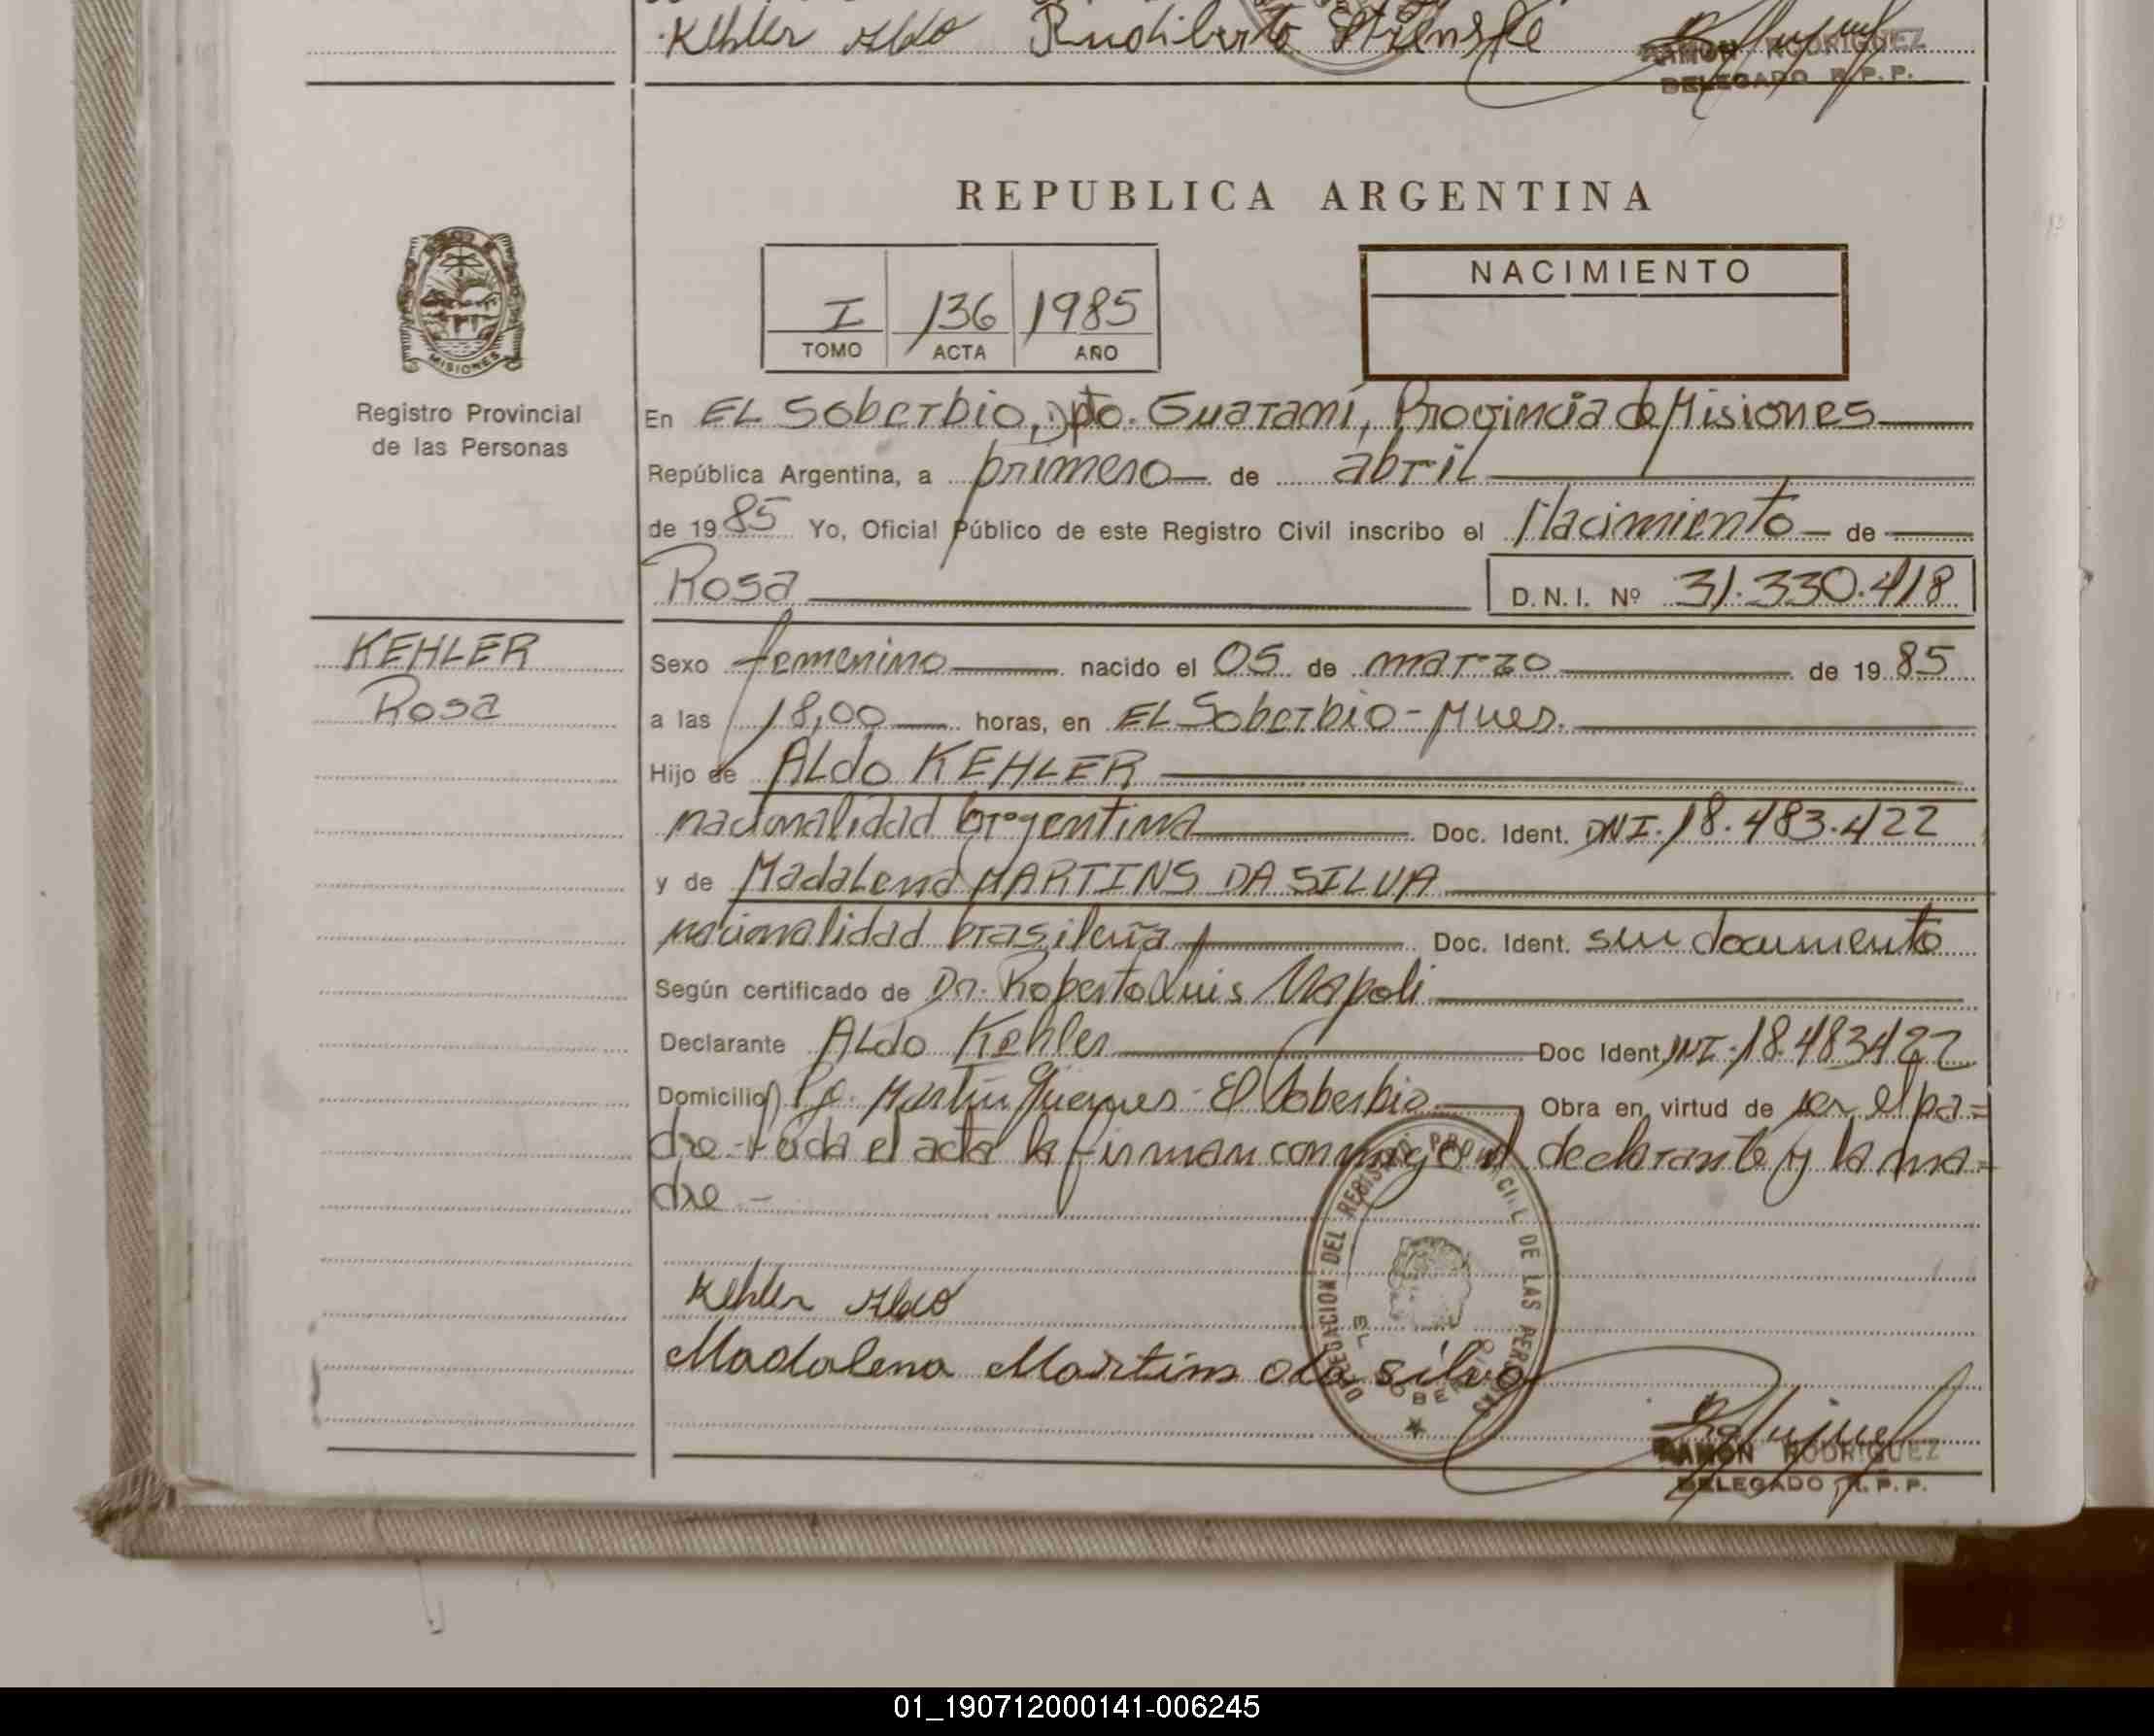 Kehler Aldo Rudiberto
RAMON RODRIGUEZ
DELEGADO R.P.P.
REPUBLICA ARGENTINA
NACIMIENTO
I 136 1985
TOMO ACTA AÑO
MISIONES
Registro Provincial
de las Personas
En EL Soberbio, Dpto. Guaraní, Provincia de Misiones
República Argentina, a primero de abril
de 1985 Yo, Oficial Público de este Registro Civil inscribo el Nacimiento de
Rosa D.N.I. Nº 31.330.418
KEHLER
Rosa
Sexo femenino nacido el 05 de marzo de 1985
a las 18,00 horas, en EL Soberbio - Mnes.
Hijo de ALdo KEHLER
nacionalidad argentina Doc. Ident. DNI. 18.483.422
y de MadaLena MARTINS DA SILVA
nacionalidad brasileña Doc. Ident. sin documento
Según certificado de Dr. Roberto Luis Napoli
Declarante ALdo Kehler Doc Ident. DNI. 18.483422
Domicilio Pje. Martín Güemes - El Soberbio Obra en virtud de ser el pa=
dre - Leída el acta la firman conmigo el declarante y la ma=
dre -
DELEGACION DEL REGISTRO PROVINCIAL DE LAS PERSONAS
EL SOBERBIO
Kehler Aldo
Madalena Martins da silva
RAMON RODRIGUEZ
DELEGADO R.P.P.
01_190712000141-006245